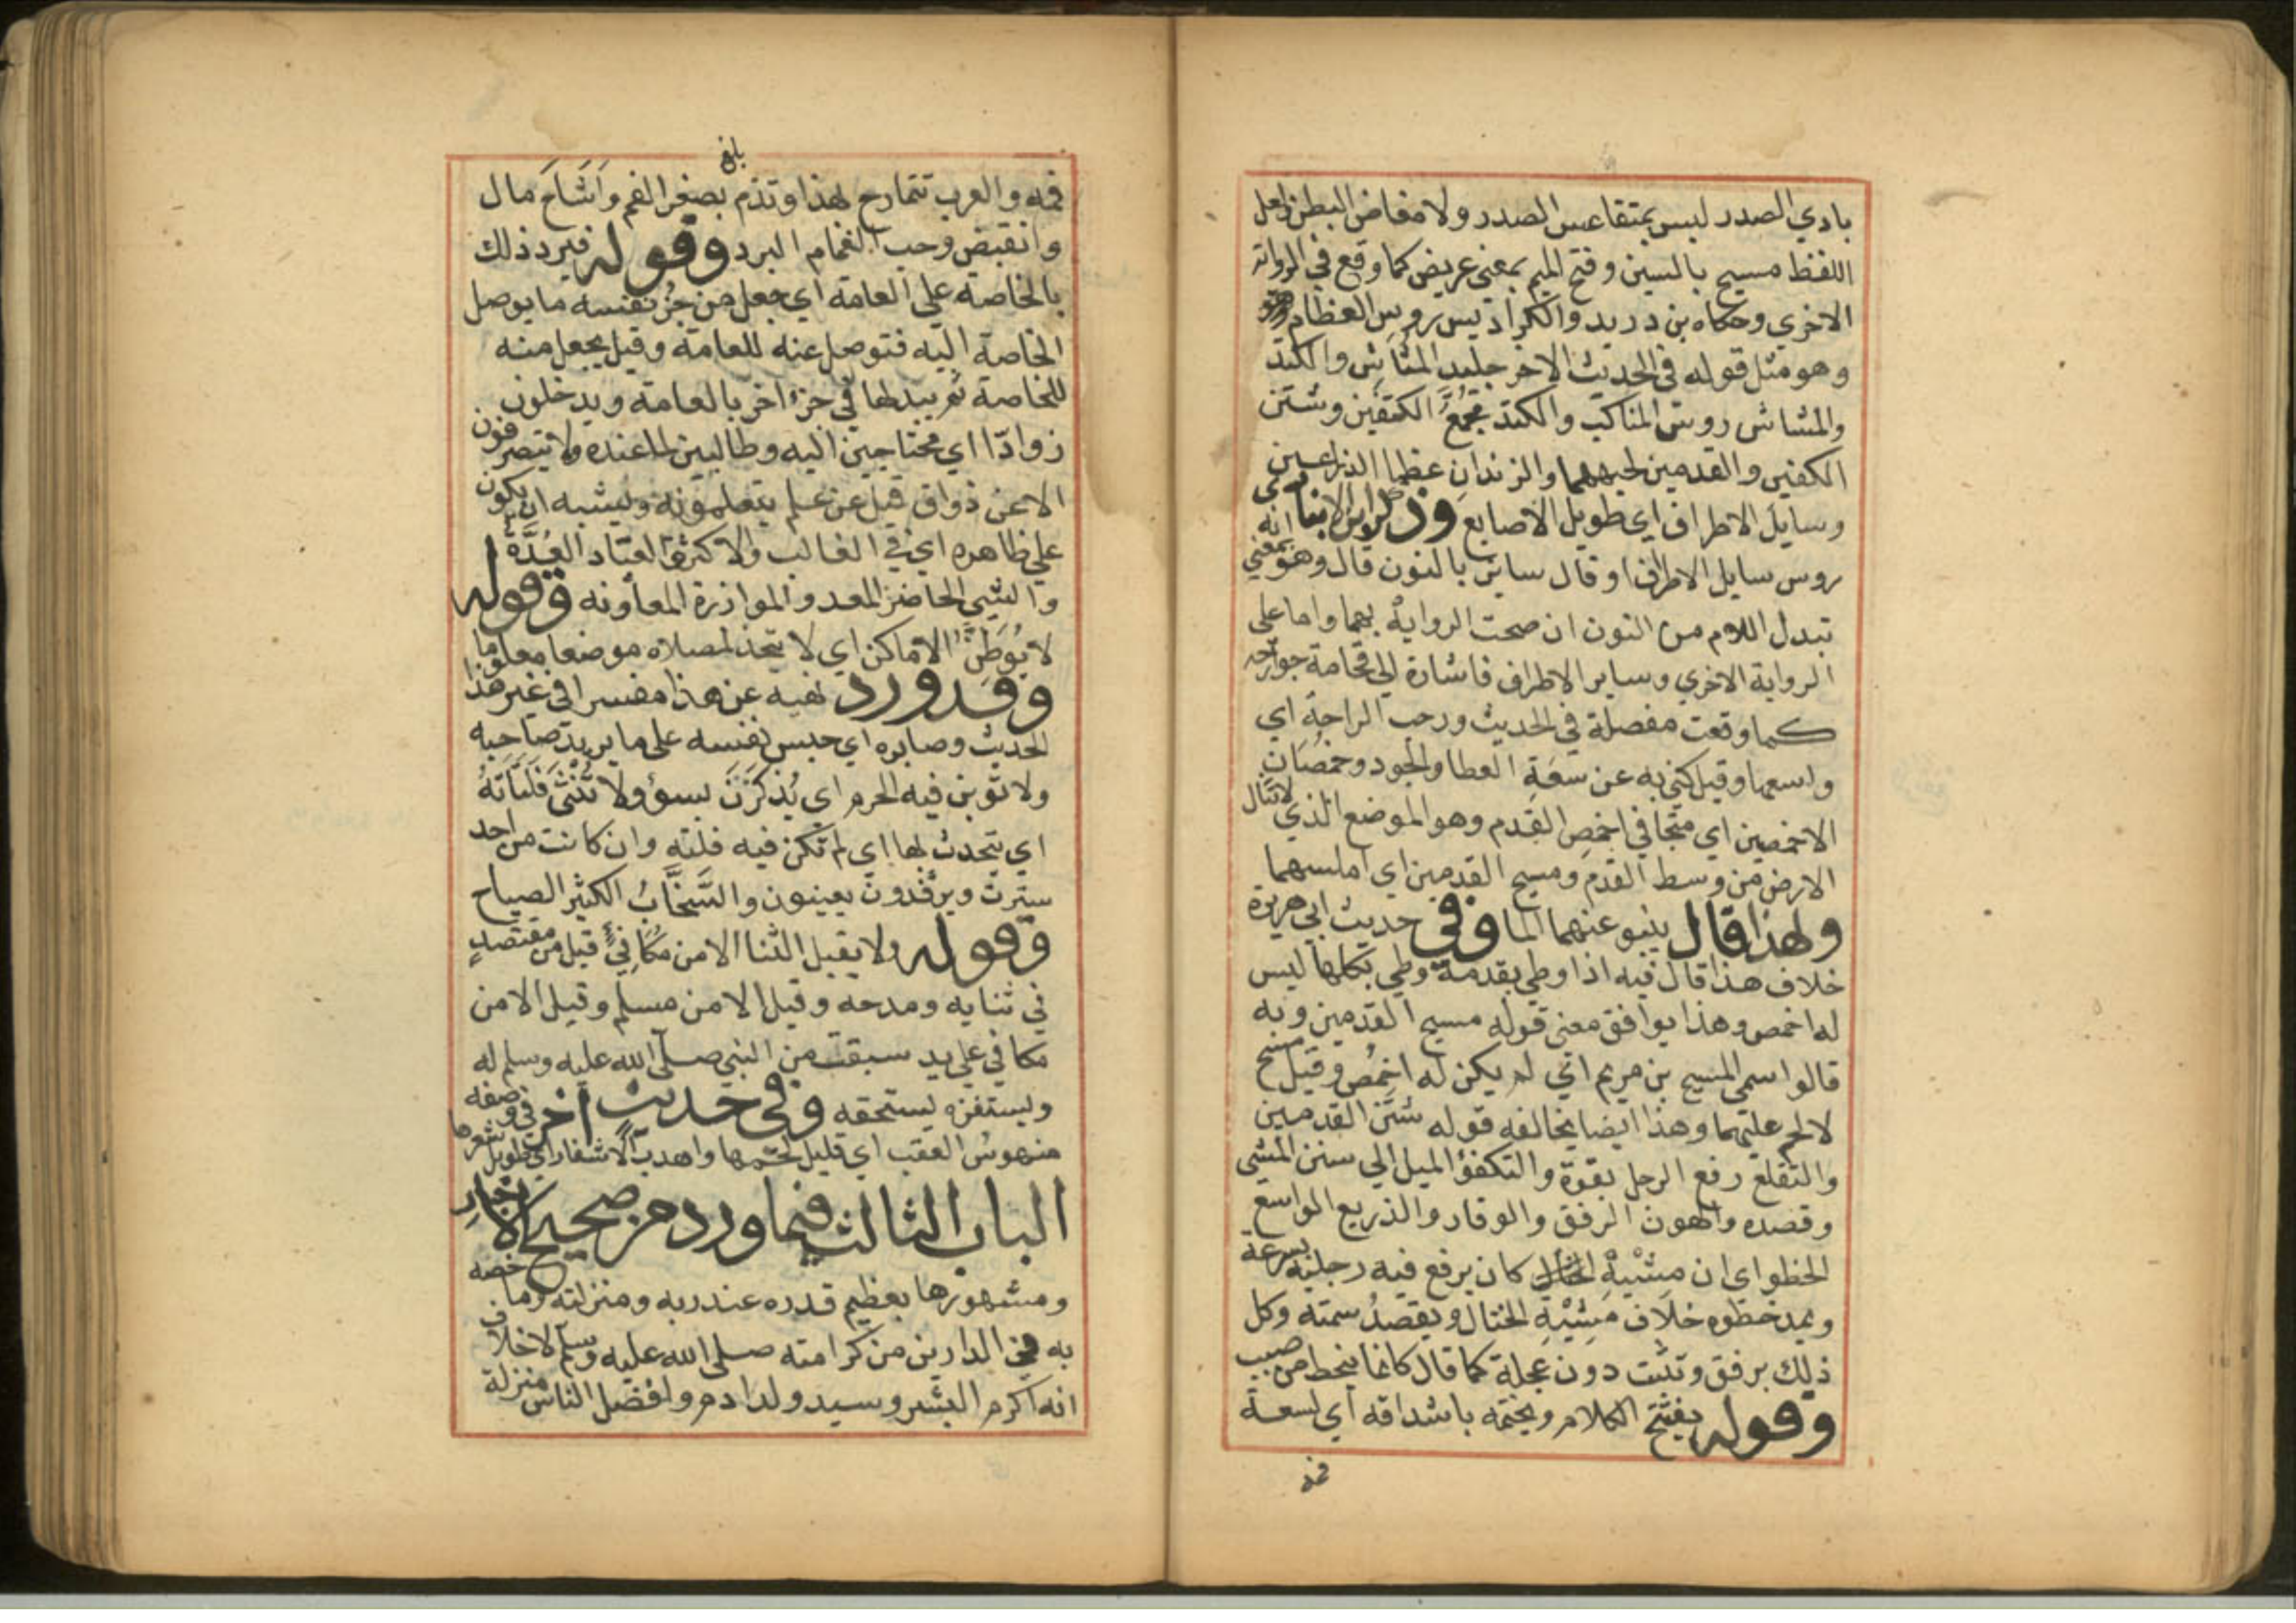 بادي الصدر ليس بمتقاعس الصدر ولا مفاض البطن ولعل
اللفظ مسيح بالسين وفتح الميم بمعنى عريض كما وقع في الرواية
الاخري وحكاه بن دريد والكراديس روس العظام
وهو مثل قوله في الحديث الاخر جليد المشاش والكتد
والمشاش روس المناكب والكتد مجمع الكتفين وشثن
الكفين والقدمين لحيمهما والزندان عظما الذراعين
وسايل الاطراف اي طويل الاصابع وذكر ابن الانباري انه
روس سايل الاطراف او قال ساين بالنون قال وهو بمعني
تبدل اللام من النون ان صحت الرواية بهما واما على
الرواية الاخري وساير الاطراف فاشارة الى فخامة جوارحه
كما وقعت مفصلة في الحديث ورحب الراحة اي
واسعها وقيل كني به عن سعة العطا والجود وخمصان
الاخمصين اي متجافي اخمص القدم وهو الموضع الذي لا تنال
الارض من وسط القدم ومسيح القدمين اي املسهما
ولهذا قال ينبو عنهما الما وفي حديث ابي هريرة
خلاف هذا قال فيه اذا وطي بقدمه وطي بكلها ليس
له اخمص وهذا يوافق معنى قوله مسيح القدمين وبه
قالوا سمي المسيح بن مريم اي لم يكن له اخمص وقيل مسيح
لا لحم عليهما وهذا ايضا يخالفه قوله شثن القدمين
والتقلع رفع الرجل بقوة والتكفؤ الميل الي سنن المشي
وقصده والهون الرفق والوقار والذريع الواسع
الخطو اي ان مشيه كان يرفع فيه رجليه بسرعة
ويمد خطوه خلاف مشية المختال ويقصد سمته وكل
ذلك برفق وتثبت دون عجلة كما قال كانما ينحط من صبب
وقوله يفتتح الكلام ويختمه باشداقه اي لسعة
فمه
بلغ
فمه والعرب تتمادح بهذا وتذم بصغر الفم واشاح مال
وانقبض وحب الغمام البرد وقوله فيرد ذلك
بالخاصة علي العامة اي جعل من جزء نفسه ما يوصل
الخاصة اليه فتوصل عنه للعامة وقيل يجعل منه
للخاصة ثم يبدلها في جزء اخر بالعامة ويدخلون
روادا اي محتاجين اليه وطالبين لما عنده ولا يتصرفون
الا عن ذواق قيل عن علم يتعلمونه ويشبه ان يكون
علي ظاهره اي في الغالب والاكثر والعتاد العدة
والشي الحاضر المعد والموازرة المعاونه وقوله
لا يوطن الاماكن اي لا يتخذ لمصلاه موضعا معلوما
وقد ورد نهيه عن هذا مفسرا في غير هذا
الحديث وصابره اي حبس نفسه على ما يريد صاحبه
ولا تؤبن فيه الحرم اي يذكرن بسوء ولا تنثى فلتاته
اي يتحدث بها اي لم تكن فيه فلته وان كانت من احد
سترت ويرفدون يعينون والسخاب الكثير الصياح
وقوله ولا يقبل الثنا الا من مكافئ قيل من مقتصد
في ثنايه ومدحه وقيل الا من مسلم وقيل الا من
مكافي علي يد سبقت من النبي صلى الله عليه وسلم له
ويستفزه يستخفه وفي حديث اخر في وصفه
منهوس العقب اي قليل لحمها واهدب الاشفار اي طويل شعرها
الباب الثالث فيما ورد من صحيح الاخبار
ومشهورها بعظيم قدره عند ربه ومنزلته وما خصه
به في الدارين من كرامته صلى الله عليه وسلم لا خلاف
انه اكرم البشر وسيد ولد ادم وافضل الناس منزلة